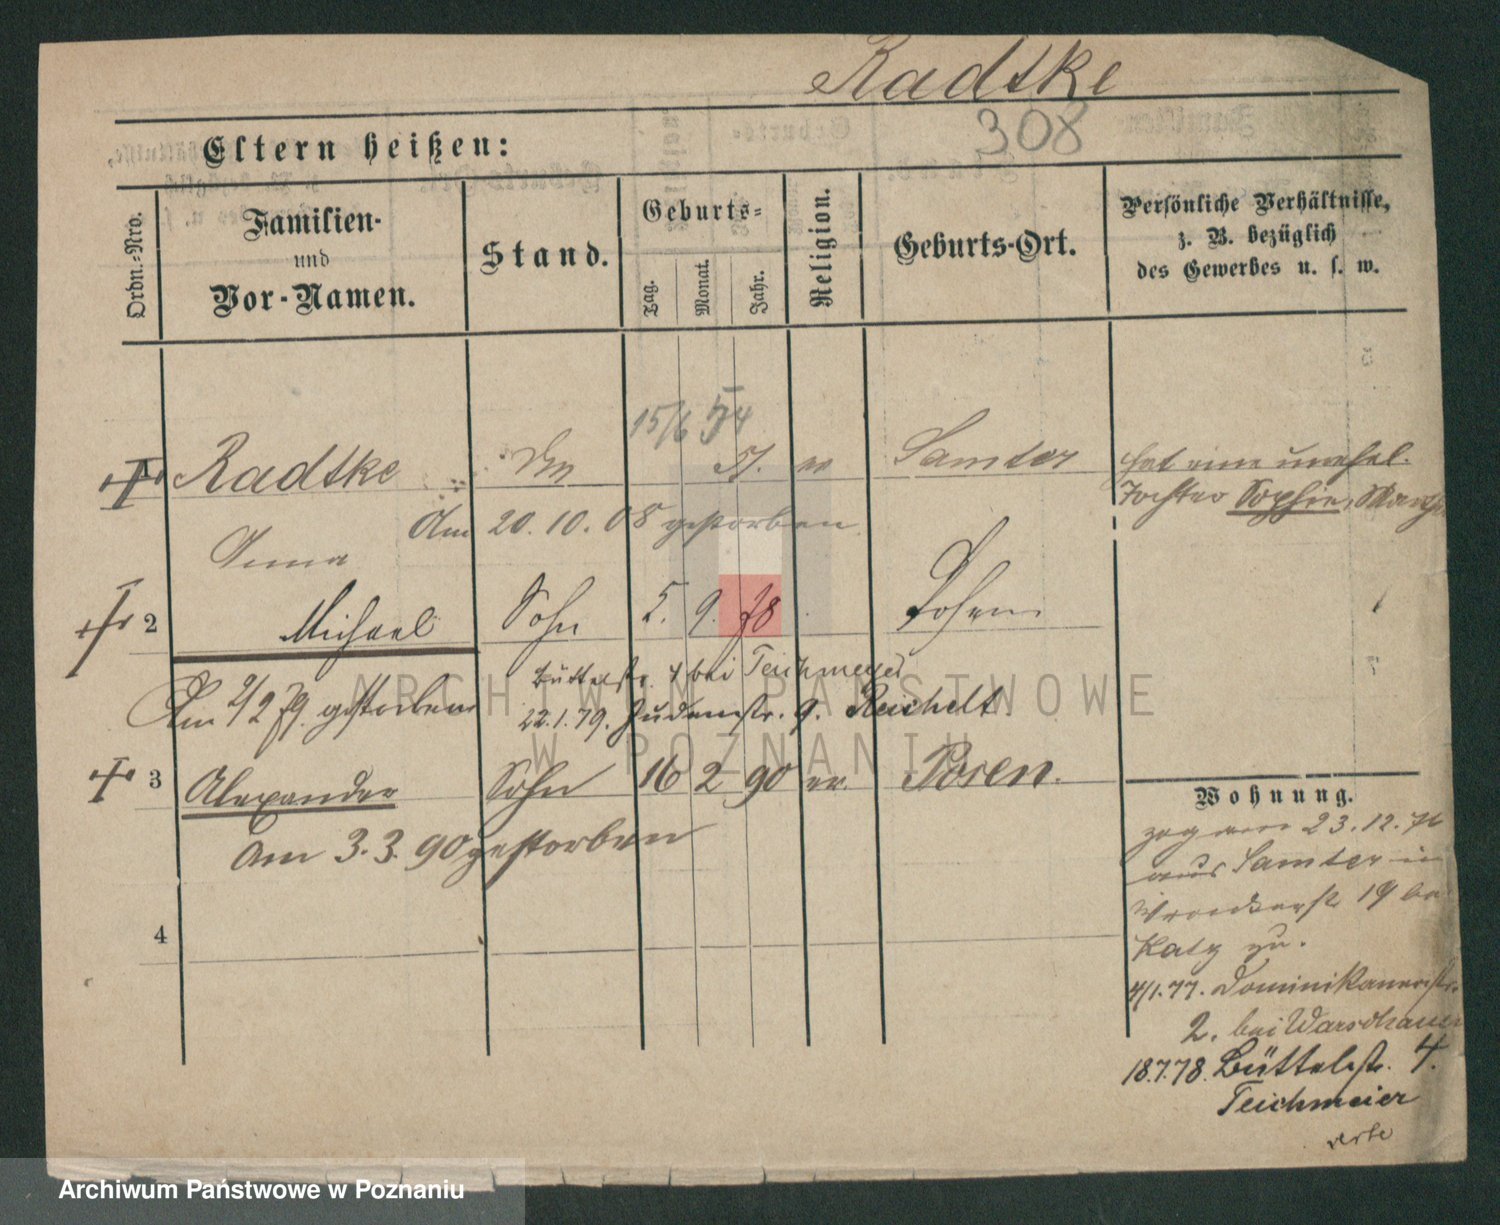 Radtke
308
Eltern heißen:
Ordn.-Nro.
Familien-
und
Vor-Namen.
Stand.
Geburts-
Tag.
Monat.
Jahr.
Religion.
Geburts-Ort.
Persönliche Verhältnisse,
z. B. bezüglich
des Gewerbes u. s. w.
15/6 54
Radtke
Samter
hat eine unehel.
Tochter Sophie,
Am 20. 10. 08 gestorben
Anna
2 Michael Sohn 5. 9. 78
Büttelstr. 4 bei Teichmeyer
Am 2/2 79. gestorben
22.1.79. Judenstr. 9. Reichelt.
3 Alexander Sohn 16 2 90 ev. Posen.
am 3. 3. 90 gestorben
4
Wohnung.
zog am 23.12.76
aus Samter in
Wronkerstr 19 bei
Katz zu.
4/1.77. Dominikanerstr.
2. bei Warschauer
18.7.78. Büttelstr. 4.
Teichmeier
ARCHIWUM PAŃSTWOWE
W POZNANIU
Archiwum Państwowe w Poznaniu